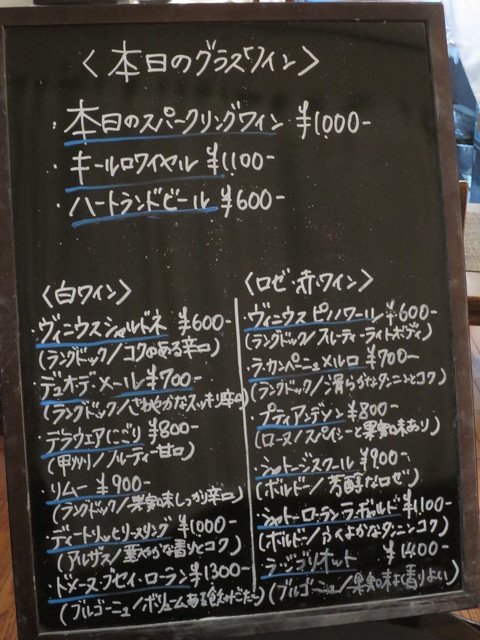 〈本日のグラスワイン〉
・本日のスパークリングワイン ¥1000-
・キールロワイヤル ¥1100-
・ハートランドビール ¥600-
〈白ワイン〉
・ヴィニウスシャルドネ ¥600-
(ラングドック/コクのある辛口)
・デュオ・デ・メール ¥700-
(ラングドック/さわやかなスッキリ辛口)
・デラウェアにごり ¥800-
(甲州/フルーティー甘口)
・リムー ¥900-
(ラングドック/果実味しっかり辛口)
・ディートリッヒリースリング ¥1000-
(アルザス/華やかな香りとコク)
・ドメーヌ・ブセイ・ローラン ¥1300-
(ブルゴーニュ/ボリュームある飲みごたえ)
〈ロゼ・赤ワイン〉
・ヴィニウスピノノワール ¥600-
(ラングドック/フルーティーライトボディ)
・ラ・カンペーニュメルロ ¥700-
(ラングドック/滑らかなタンニンとコク)
・プティアンデソン ¥800-
(ローヌ/スパイシーと果実味あり)
・シャトージスクール ¥900-
(ボルドー/芳醇なロゼ)
・シャトーローランラギャルド ¥1100-
(ボルドー/ふくよかなタンニンコク)
・ラ・ジブリオット ¥1400-
(ブルゴーニュ/果実味よく香りよい)